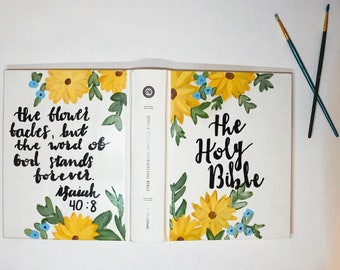 the flower
fades, but
the word of
God stands
forever.
Isaiah
40:8
the
Holy
Bible